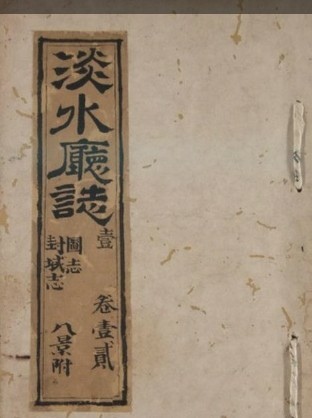 淡水廳誌
壹
圖志
封域志
卷壹貳
八景附